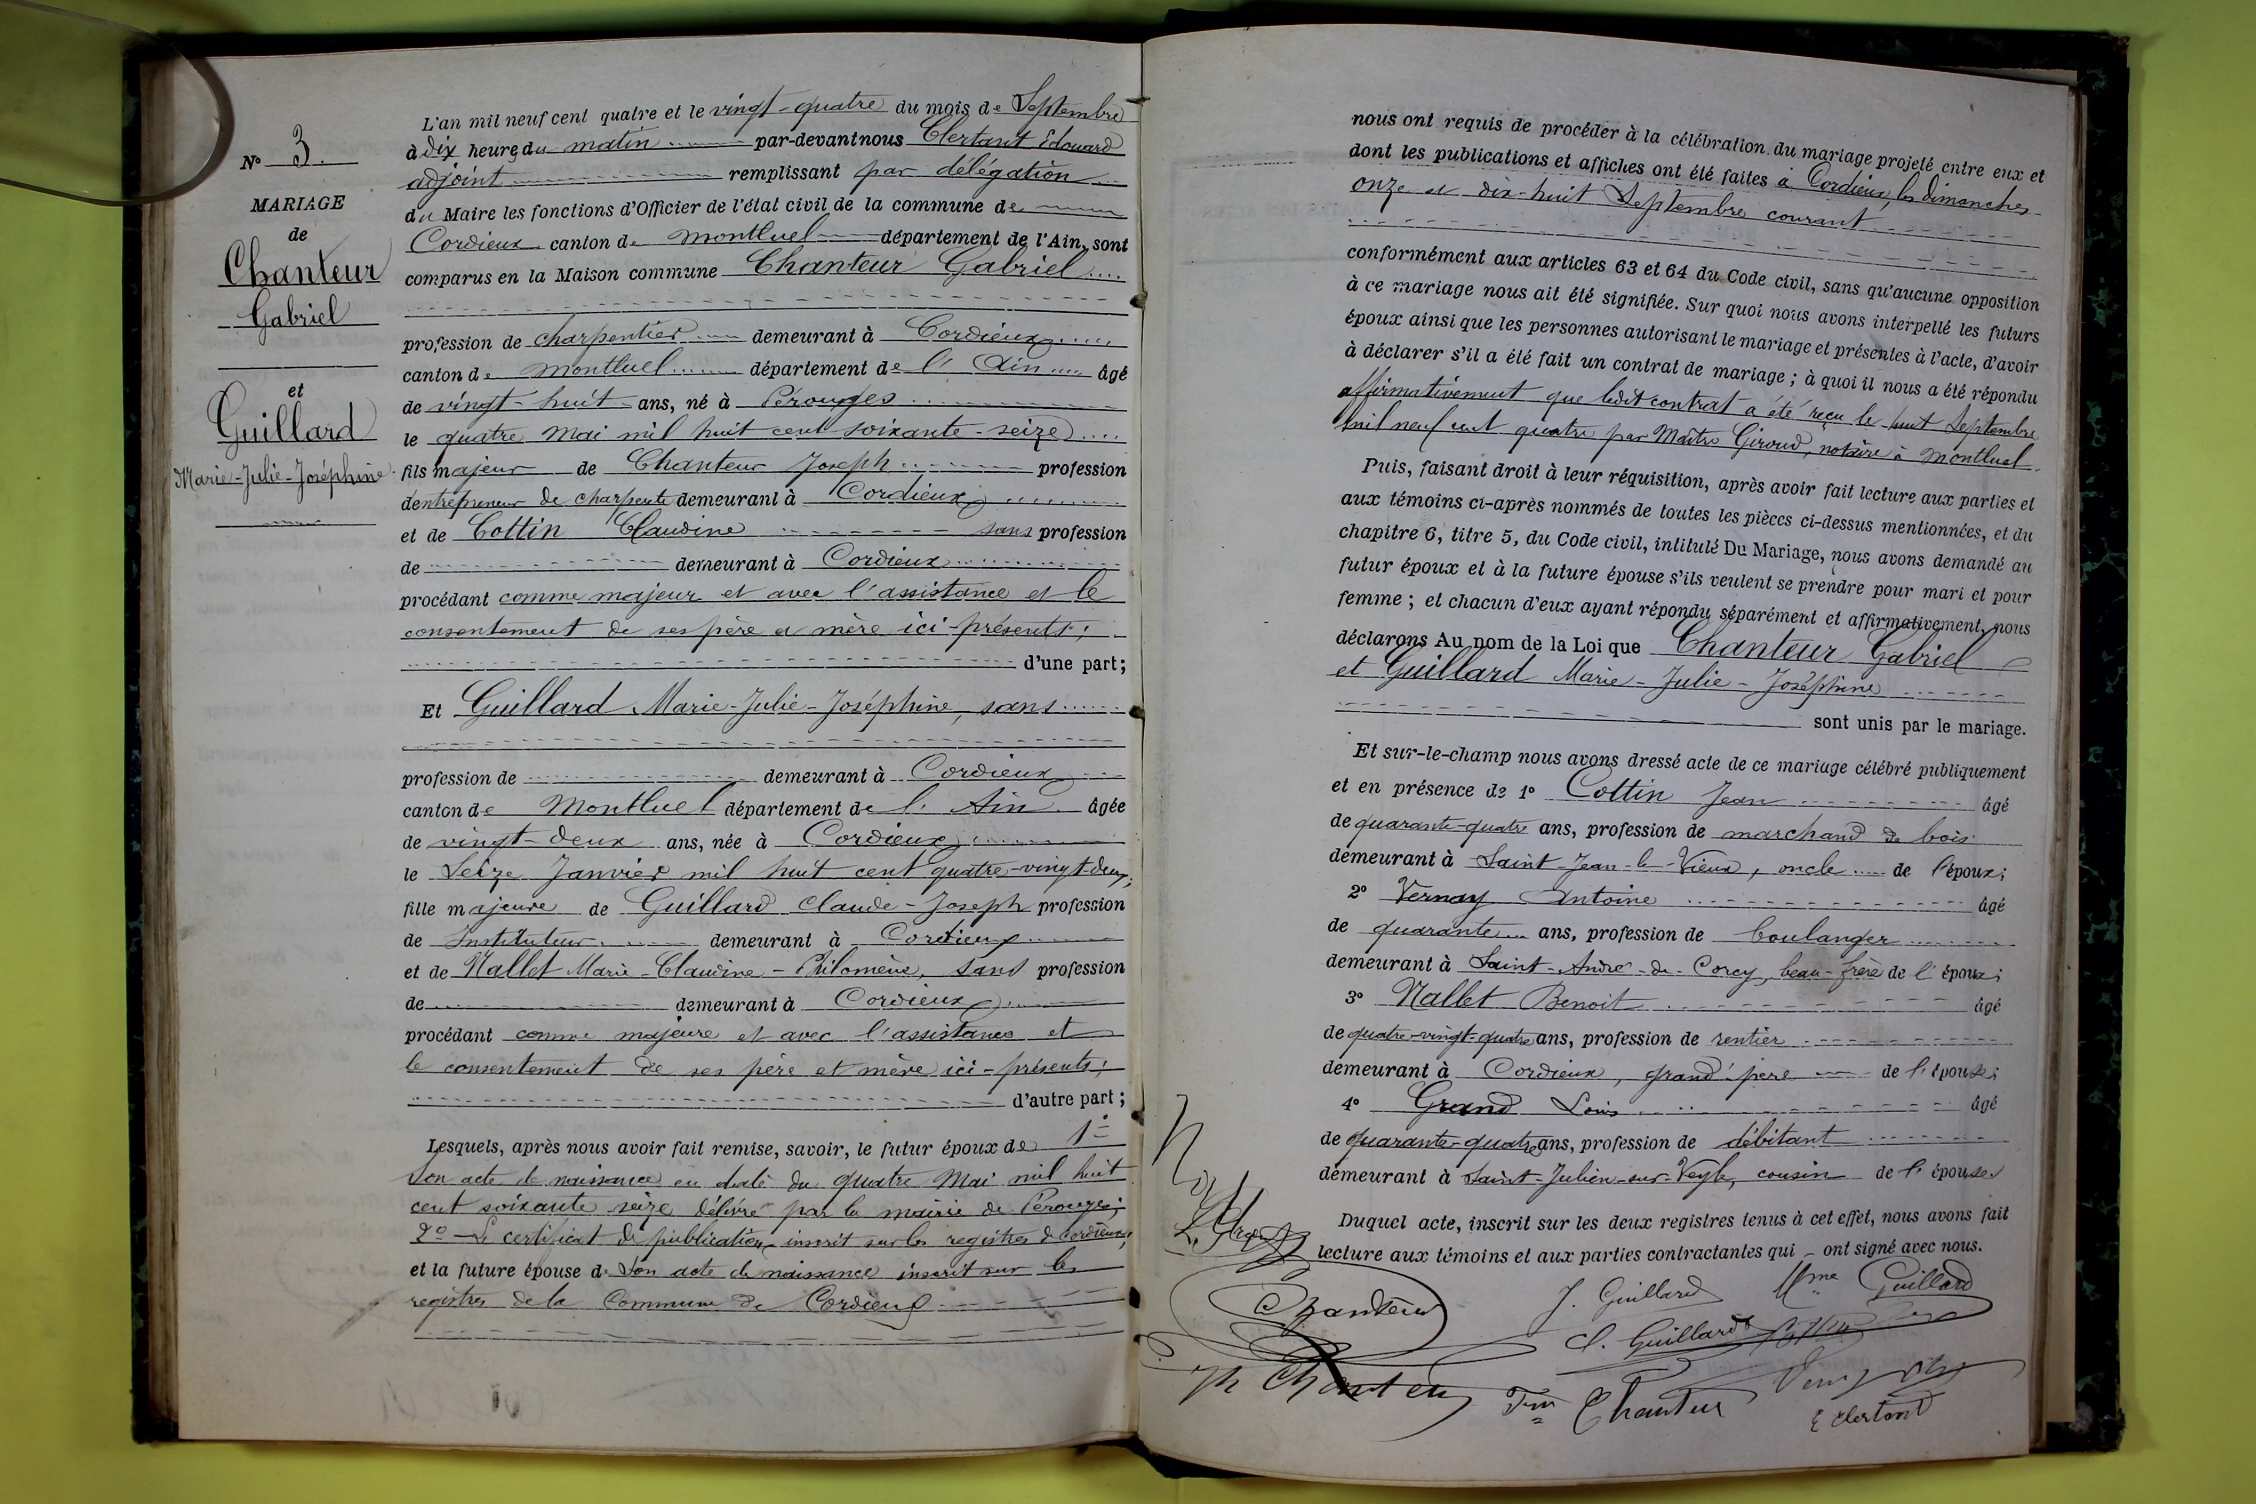 N° 3.
MARIAGE
de
Chanteur
Gabriel
et
Guillard
Marie-Julie-Joséphine
L'an mil neuf cent quatre et le vingt-quatre du mois de Septembre
à dix heures du matin par-devant nous Clertant Edouard
adjoint remplissant par délégation
du Maire les fonctions d'Officier de l'état civil de la commune de
Cordieux canton de Montluel département de l'Ain, sont
comparus en la Maison commune Chanteur Gabriel
profession de charpentier demeurant à Cordieux
canton de Montluel département de l'Ain âgé
de vingt-huit ans, né à Pérouges
le quatre Mai mil huit cent soixante-seize
fils majeur de Chanteur Joseph profession
d'entrepreneur de charpente demeurant à Cordieux
et de Cottin Claudine sans profession
de demeurant à Cordieux
procédant comme majeur et avec l'assistance et le
consentement de ses père et mère ici-présents;
d'une part;
Et Guillard Marie-Julie-Joséphine, sans
profession de demeurant à Cordieux
canton de Montluel département de l'Ain âgée
de vingt-deux ans, née à Cordieux
le Seize Janvier mil huit cent quatre-vingt-deux;
fille majeure de Guillard Claude-Joseph profession
de Instituteur demeurant à Cordieux
et de Nallet Marie-Claudine-Philomène, sans profession
de demeurant à Cordieux
procédant comme majeure et avec l'assistance et
le consentement de ses père et mère ici-présents;
d'autre part;
Lesquels, après nous avoir fait remise, savoir, le futur époux de 1°
Son acte de naissance en date du quatre Mai mil huit
cent soixante seize délivré par la mairie de Pérouges;
2° Le certificat de publication inscrit sur les registres de Cordieux,
et la future épouse de Son acte de naissance inscrit sur les
registres de la Commune de Cordieux
nous ont requis de procéder à la célébration du mariage projeté entre eux et
dont les publications et affiches ont été faites à Cordieux, les dimanches
onze et dix-huit Septembre courant
conformément aux articles 63 et 64 du Code civil, sans qu'aucune opposition
à ce mariage nous ait été signifiée. Sur quoi nous avons interpellé les futurs
époux ainsi que les personnes autorisant le mariage et présentes à l'acte, d'avoir
à déclarer s'il a été fait un contrat de mariage; à quoi il nous a été répondu
affirmativement que ledit contrat a été reçu le huit Septembre
mil neuf cent quatre par Maître Giroud, notaire à Montluel.
Puis, faisant droit à leur réquisition, après avoir fait lecture aux parties et
aux témoins ci-après nommés de toutes les pièces ci-dessus mentionnées, et du
chapitre 6, titre 5, du Code civil, intitulé Du Mariage, nous avons demandé au
futur époux et à la future épouse s'ils veulent se prendre pour mari et pour
femme; et chacun d'eux ayant répondu séparément et affirmativement, nous
déclarons Au nom de la Loi que Chanteur Gabriel
et Guillard Marie-Julie-Joséphine
sont unis par le mariage.
Et sur-le-champ nous avons dressé acte de ce mariage célébré publiquement
et en présence de 1° Cottin Jean âgé
de quarante-quatre ans, profession de marchand de bois
demeurant à Saint-Jean-le-Vieux, oncle de l'époux;
2° Vernay Antoine âgé
de quarante ans, profession de boulanger
demeurant à Saint-André-de-Corcy, beau-frère de l'époux;
3° Nallet Benoit âgé
de quatre-vingt-quatre ans, profession de rentier
demeurant à Cordieux, grand'père de l'épouse;
4° Grand Louis âgé
de quarante-quatre ans, profession de débitant
demeurant à Saint-Julien-sur-Veyle, cousin de l'épouse
Duquel acte, inscrit sur les deux registres tenus à cet effet, nous avons fait
lecture aux témoins et aux parties contractantes qui ont signé avec nous.
J. Guillard Mme Guillard
Chanteur
C. Guillard Cottin
Chanteur
Fme Chanteur
E Clertant